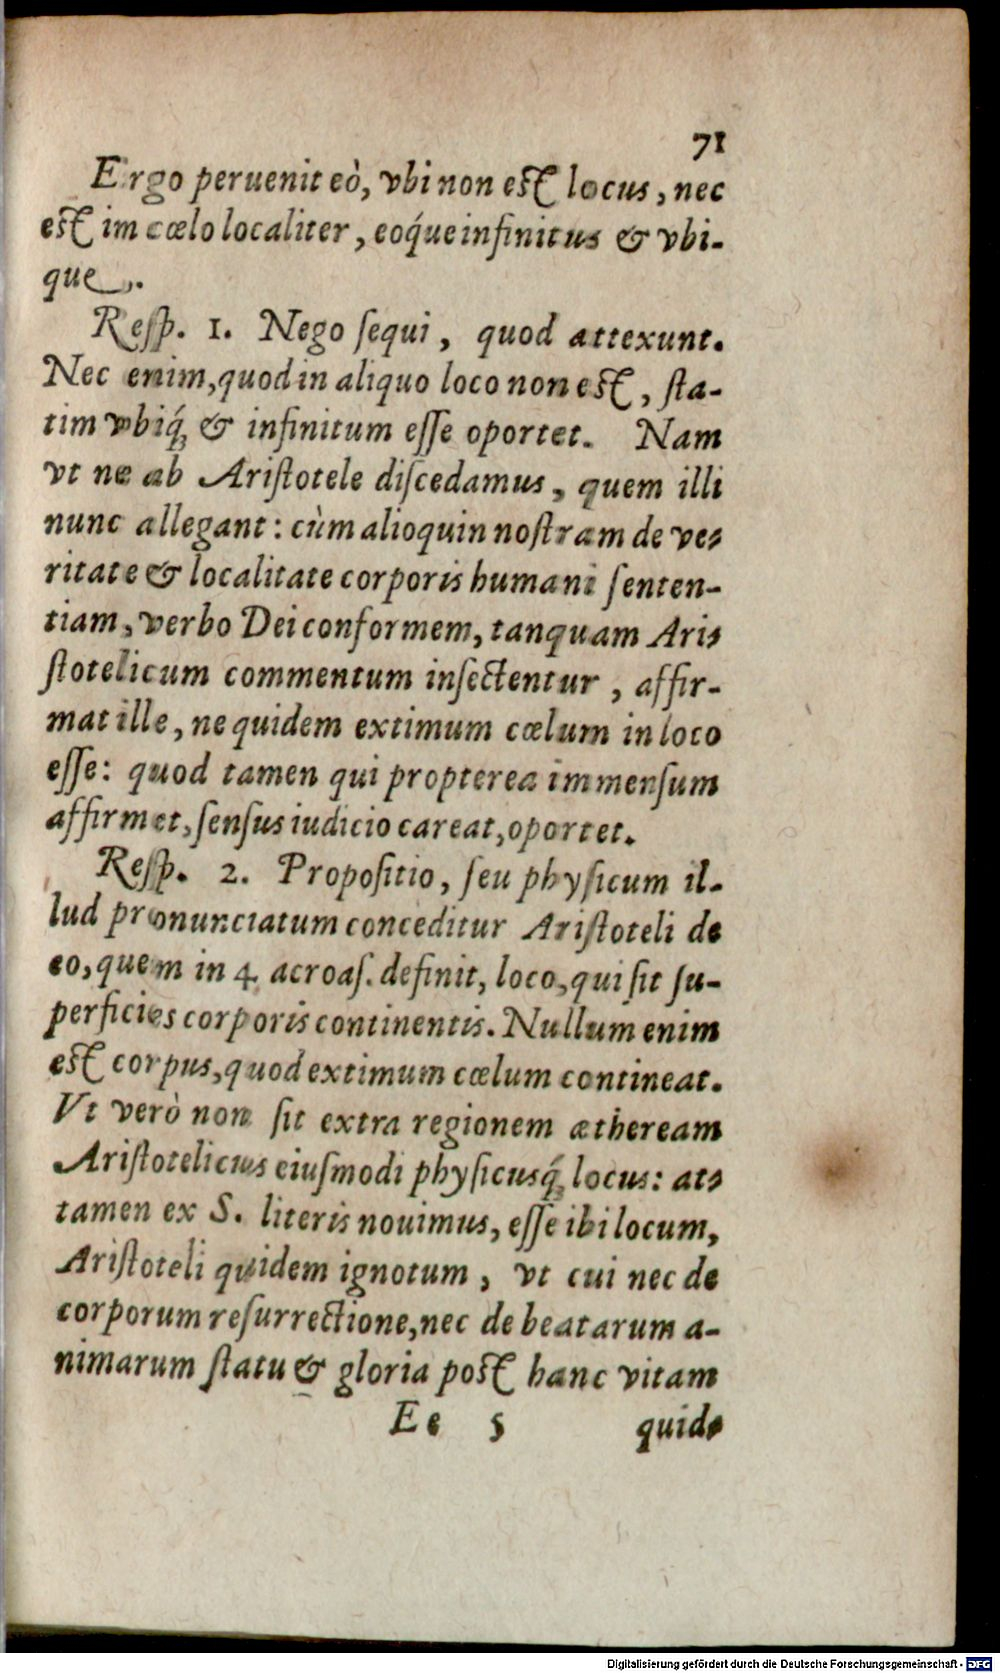 71
Ergo peruenit eò, vbi non est locus, nec
est im cœlo localiter, eoq́ue infinitus & vbi-
que.
Resp. 1. Nego sequi, quod attexunt.
Nec enim, quod in aliquo loco non est, sta-
tim vbiq́; & infinitum esse oportet. Nam
vt ne ab Aristotele discedamus, quem illi
nunc allegant: cùm alioquin nostram de ve-
ritate & localitate corporis humani senten-
tiam, verbo Dei conformem, tanquam Ari-
stotelicum commentum insectentur, affir-
mat ille, ne quidem extimum cœlum in loco
esse: quod tamen qui propterea immensum
affirmet, sensus iudicio careat, oportet.
Resp. 2. Propositio, seu physicum il-
lud pronunciatum conceditur Aristoteli de
eo, quem in 4. acroas. definit, loco, qui sit su-
perficies corporis continentis. Nullum enim
est corpus, quod extimum cœlum contineat.
Vt verò non sit extra regionem ætheream
Aristotelicus eiusmodi physicusq́; locus: at-
tamen ex S. literis nouimus, esse ibi locum,
Aristoteli quidem ignotum, vt cui nec de
corporum resurrectione, nec de beatarum a-
nimarum statu & gloria post hanc vitam
Ee 5 quid-
Digitalisierung gefördert durch die Deutsche Forschungsgemeinschaft - DFG